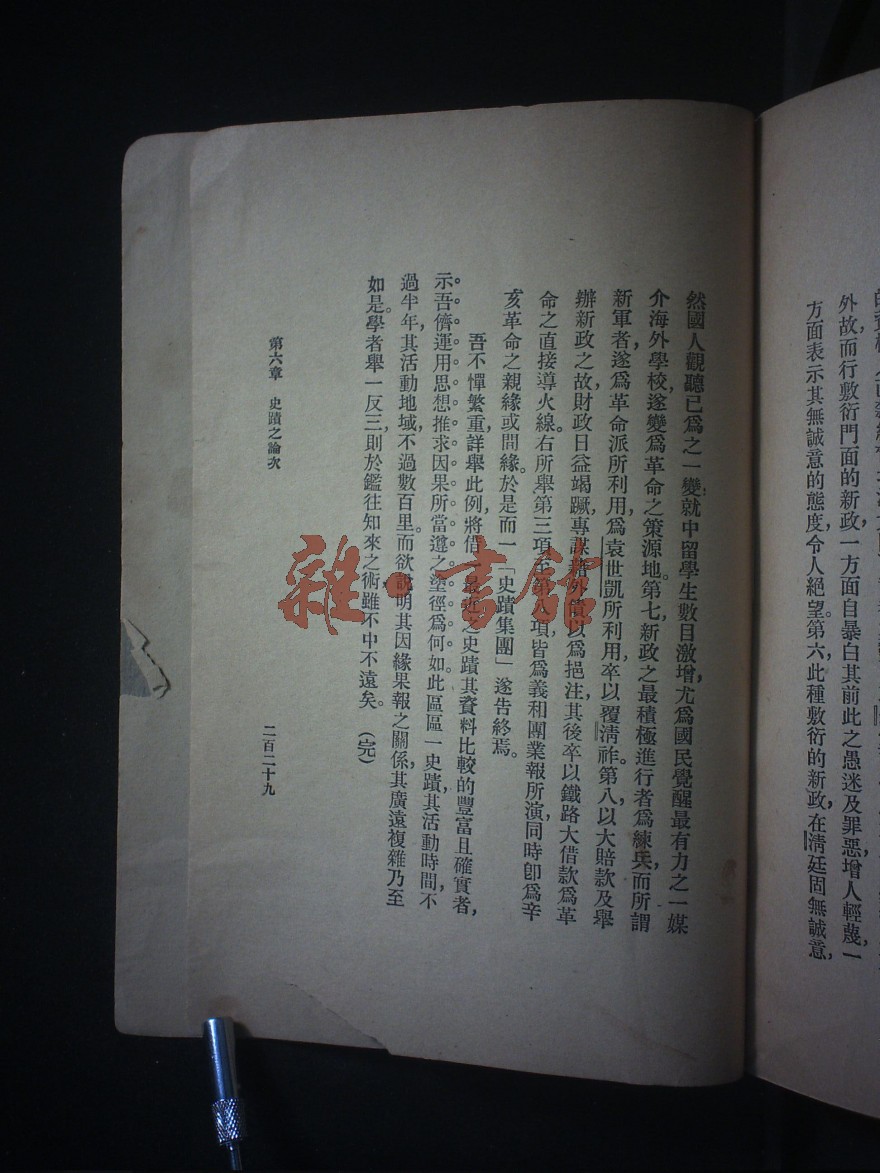 外故而行敷衍門面的新政一方面自暴白其前此之愚迷及罪惡增人輕蔑一
方面表示其無誠意的態度令人絕望第六此種敷衍的新政在清廷固無誠意
然國人觀聽已爲之一變就中留學生數目激增尤爲國民覺醒最有力之一媒
介海外學校遂變爲革命之策源地。第七新政之最積極進行者爲練兵而所謂
新軍者遂爲革命派所利用爲袁世凱所利用卒以覆清祚。第八以大賠款及舉
辦新政之故財政日益竭蹶專謀藉外債以爲挹注其後卒以鐵路大借款爲革
命之直接導火線。右所舉第三項至第八項皆爲義和團業報所演同時卽爲辛
亥革命之親緣或間緣。於是而一「史蹟集團」遂告終焉。
吾不憚繁重詳舉此例將借 最近之史蹟其資料比較的豐富且確實者
示。吾儕運用思想推求因果所當遵之塗徑爲何如此區區一史蹟其活動時間不
過半年其活動地域不過數百里。而欲說明其因緣果報之關係其廣遠複雜乃至
如是。學者舉一反三則於鑑往知來之術雖不中不遠矣。(完)
第六章 史蹟之論次
二百二十九
雜·書館